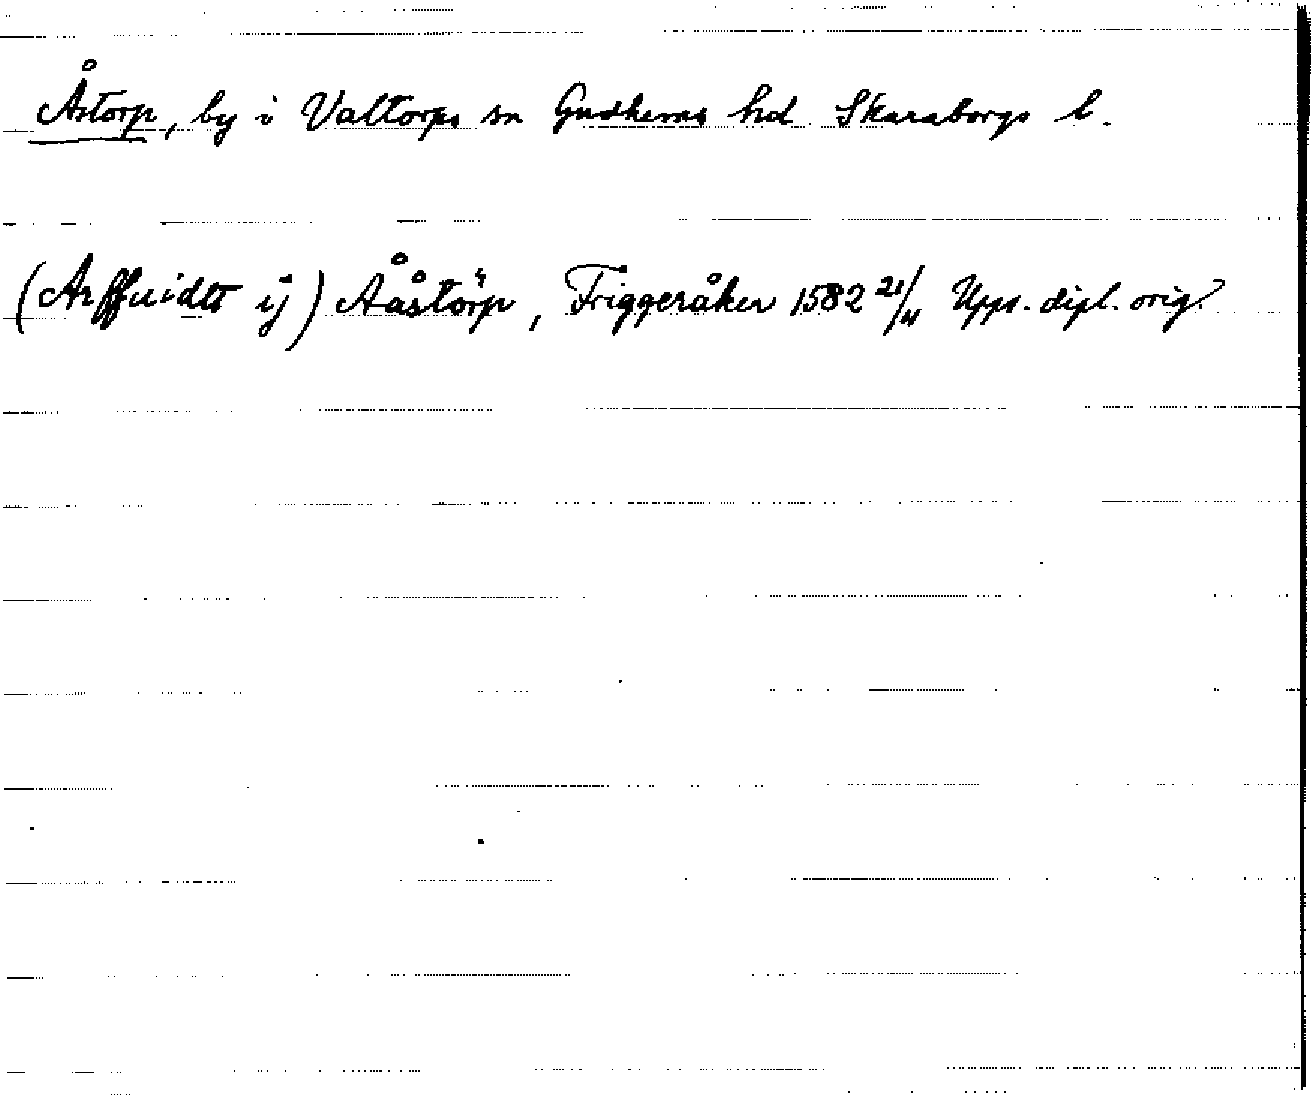 Åstorp, by i Valtorps sn Gudhems hd Skaraborgs l.
(Arffuidtt ij) Ååstörp, Friggeråker 1582 21/11 Upps. dipl. orig.